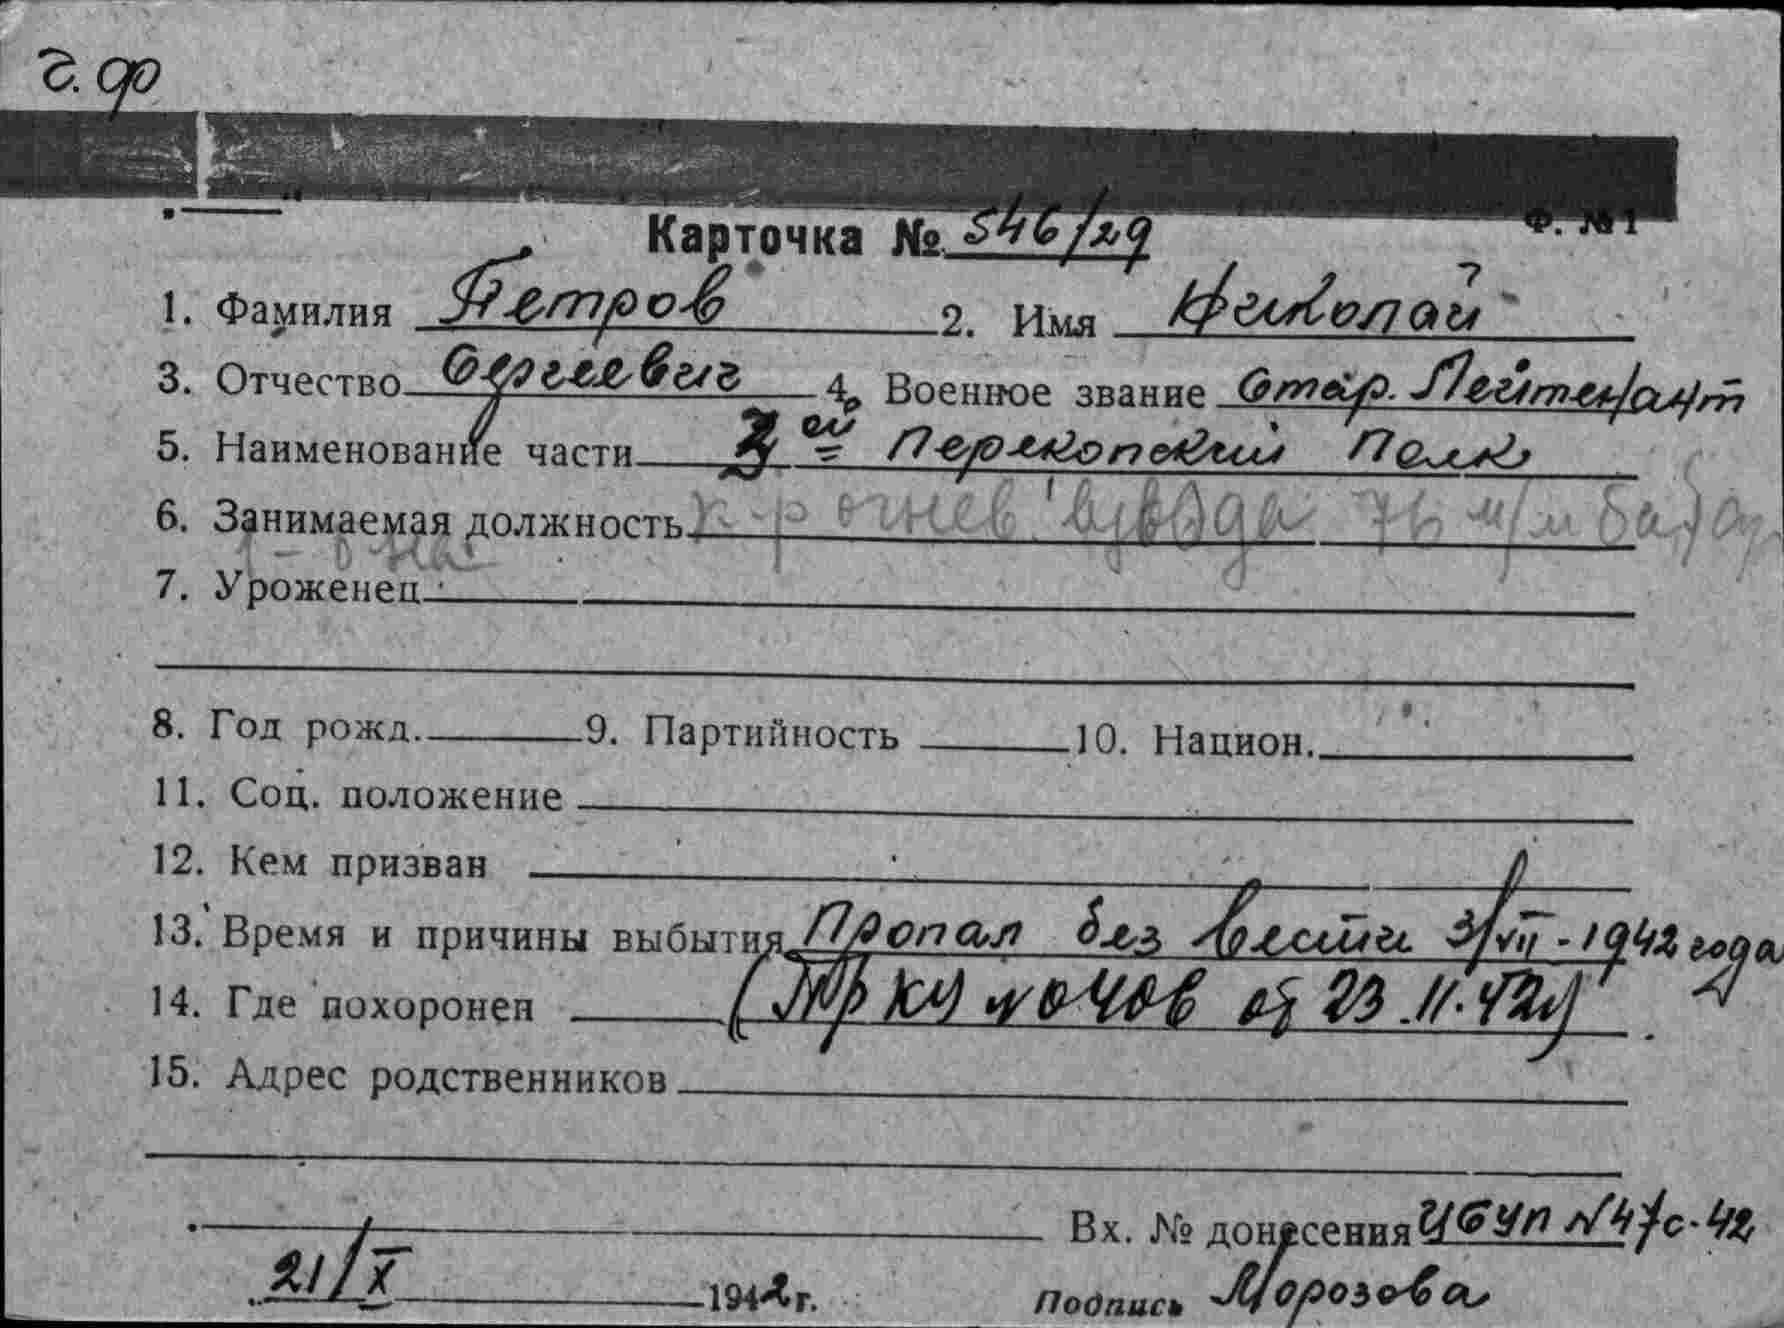 Ф. №1
Карточка № 546/29
1. Фамилия Петров 2. Имя Николай
3. Отчество Сергеевич 4. Военное звание Стар. Лейтенант
5. Наименование части 3 ей Перекопский Полк
6. Занимаемая должность к-р огнев. взвода 76 м/м батар.
7. Уроженец
8. Год рожд. 9. Партийность 10. Национ.
11. Соц. положение
12. Кем призван
13. Время и причины выбытия Пропал без вести 3/VII-1942 года
14. Где похоронен (Пр КЧ № 0408 от 23.11.42г)
15. Адрес родственников
Вх. № донесения ЦБУП №47с-42
21/X 1942 г. Подпись Морозова